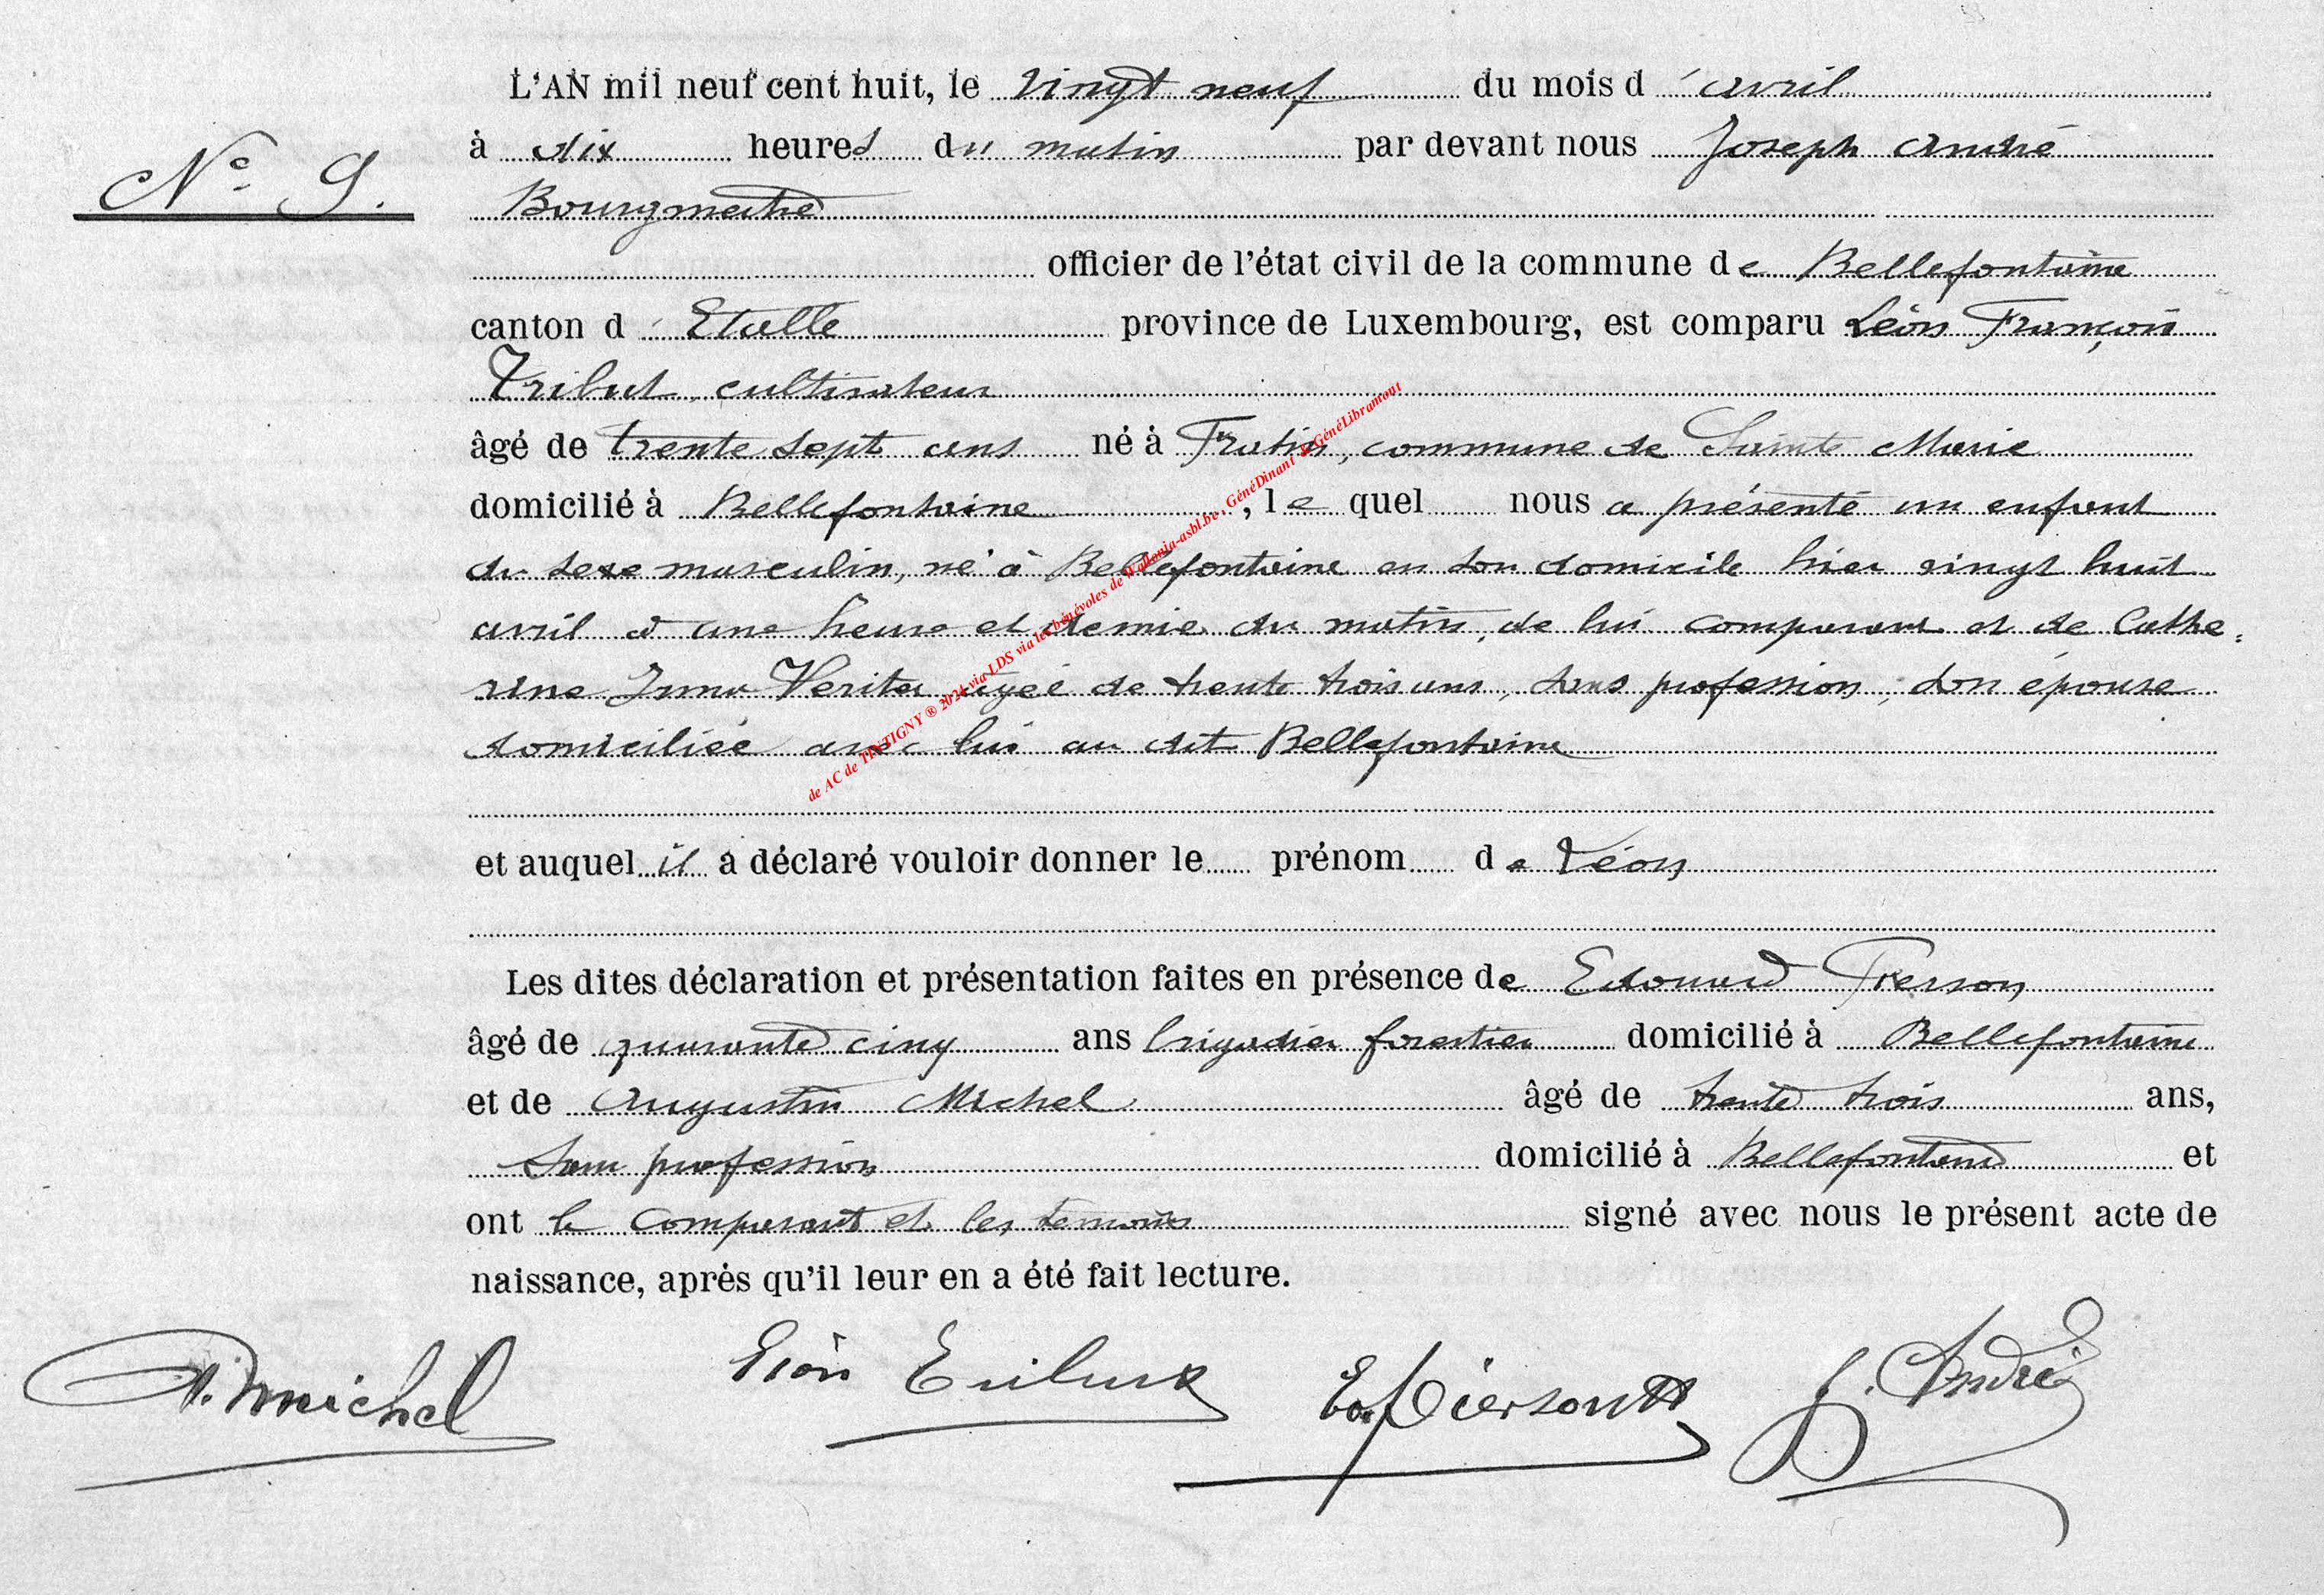 L'AN mil neuf cent huit, le vingt neuf du mois d'avril
à dix heures du matin par devant nous Joseph André
N° 9.
Bourgmestre
officier de l'état civil de la commune de Bellefontaine
canton d'Etalle province de Luxembourg, est comparu Léon François
Tribut, cultivateur
âgé de trente sept ans né à Fratin, commune de Sainte Marie
domicilié à Bellefontaine, lequel nous a présenté un enfant
du sexe masculin, né à Bellefontaine en son domicile hier vingt huit
avril à une heure et demie du matin, de lui comparant et de Cathe=
rine Irma agée de trente trois ans, sans profession, son épouse
domiciliée avec lui au dit Bellefontaine
de AC de TINTIGNY ® 2024 via LDS via les bénévoles de Wallonia-asbl.be, GénéDinant & GénéLibramont
et auquel il a déclaré vouloir donner le prénom de Léon
Les dites déclaration et présentation faites en présence de Edouard Pierson
âgé de quarante cinq ans brigadier forestier domicilié à Bellefontaine
et de Augustin Michel âgé de trente trois ans,
sans profession domicilié à Bellefontaine et
ont le comparant et les témoins signé avec nous le présent acte de
naissance, après qu'il leur en a été fait lecture.
A. Michel Léon Tribut Ed. Pierson J. André